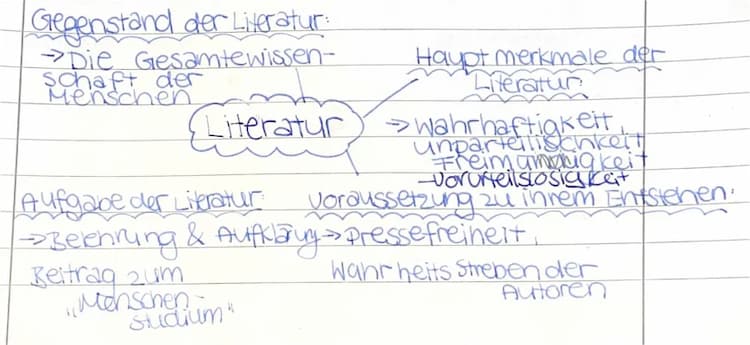 Gegenstand der Literatur:
→ Die Gesamtewissen-
schaft der
Menschen
Hauptmerkmale der
Literatur:
Literatur
→ Wahrhaftigkeit,
Unparteilischkeit
Freimunigkeit
Vorurteilslosigkeit
Aufgabe der Literatur:
→ Belehrung & Aufklärung
Beitrag zum
"Menschen-
studium"
Voraussetzung zu ihrem Entstehen:
→ Pressefreiheit,
Wahrheitsstreben der
Autoren